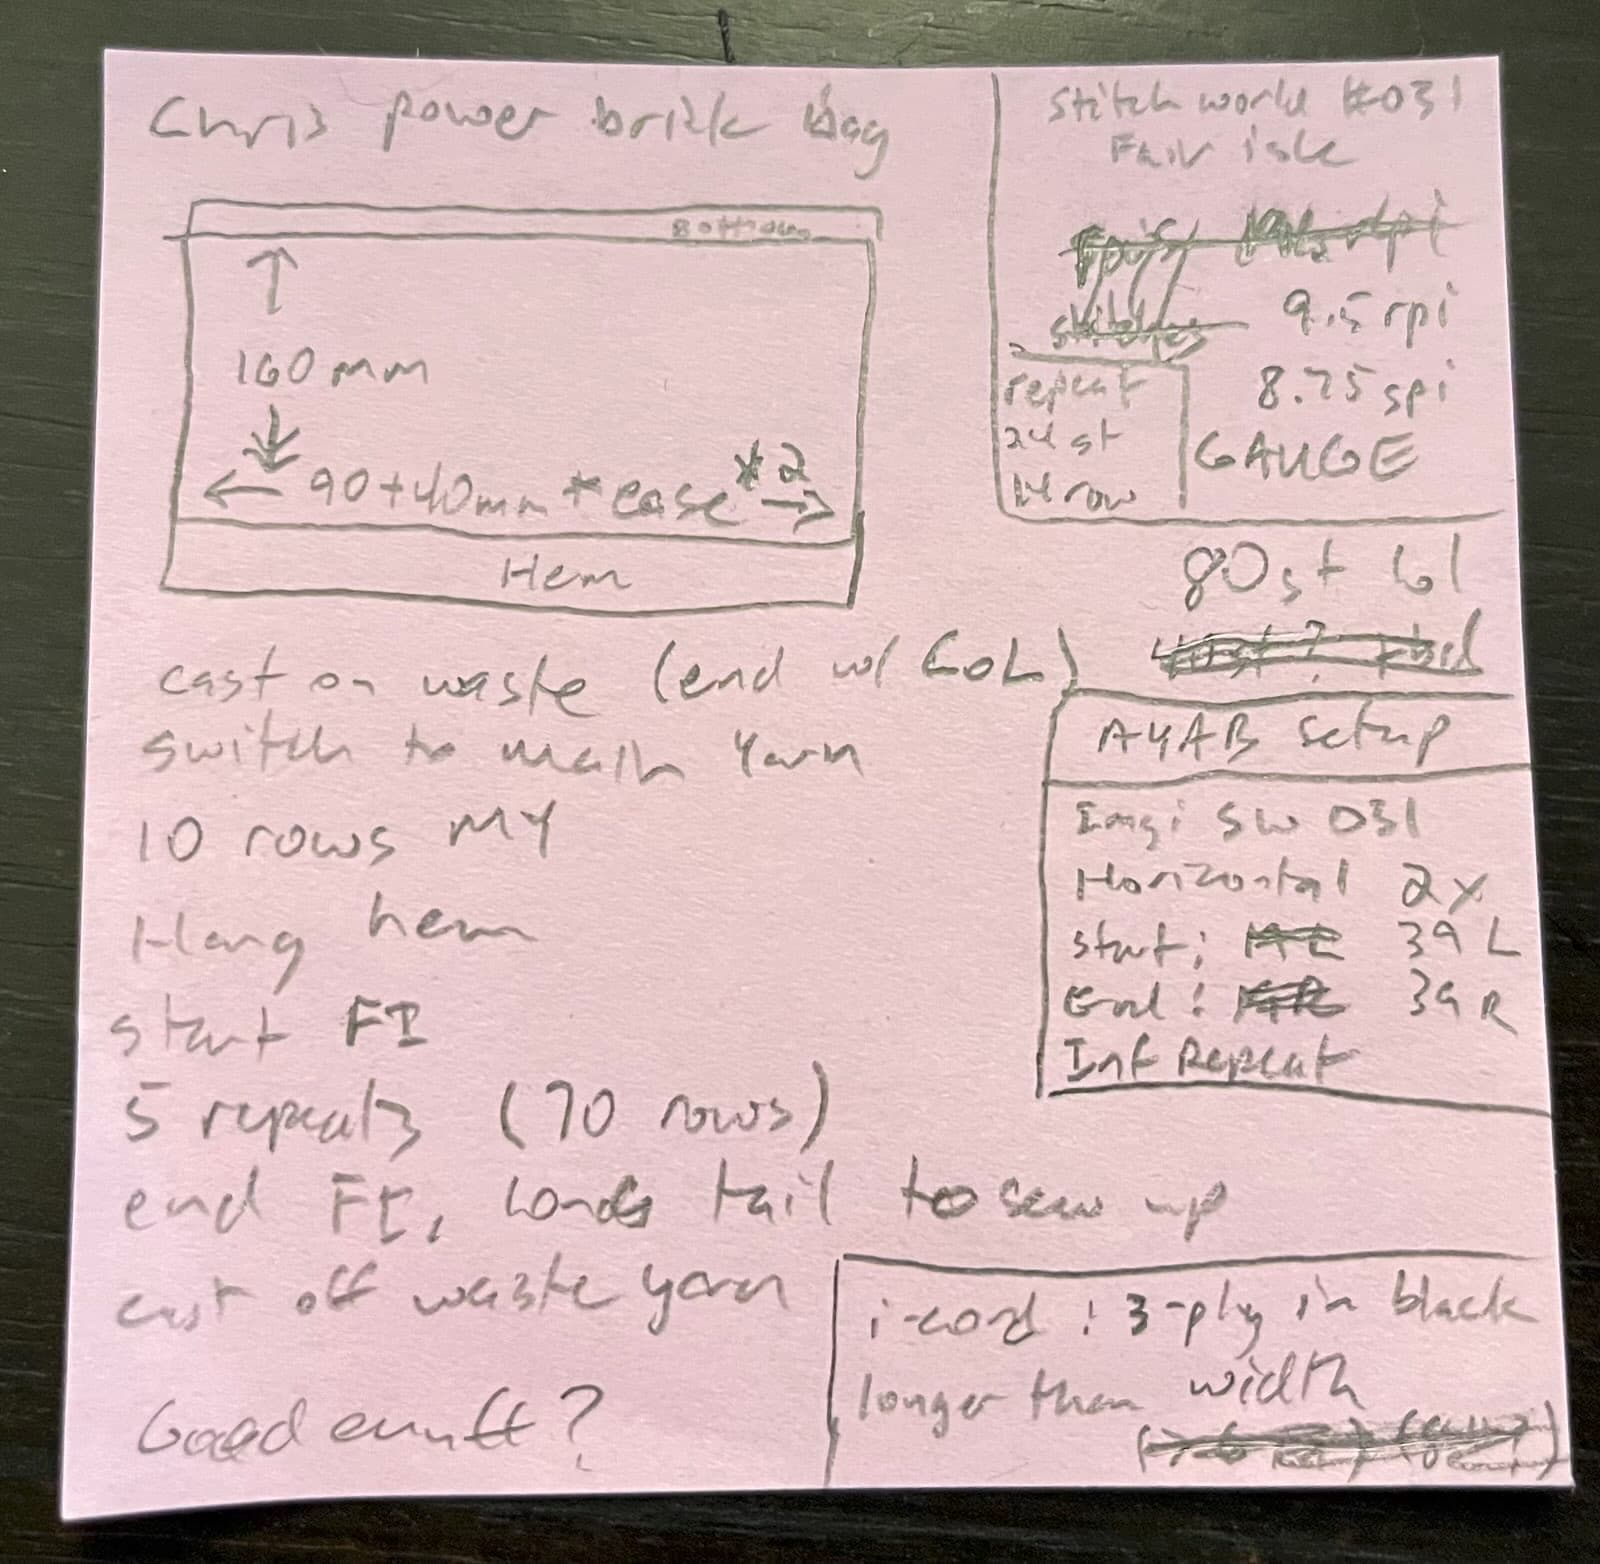 Chris power brick bag
Bottom
160 mm
90+40mm * ease *2
Hem
Stitch world #031
Fair isle
stitches
9.5 rpi
8.75 spi
GAUGE
repeat
24 st
14 row
80st
cast on waste (end w/ COL)
switch to main yarn
10 rows MY
Hang hem
start FI
5 repeats (70 rows)
end FI, long tail to sew up
cast off waste yarn
Good enuff?
AYAB setup
Img: SW 031
Horizontal 2x
start: 39 L
End: 39 R
Inf Repeat
i-cord: 3-ply in black
longer than width